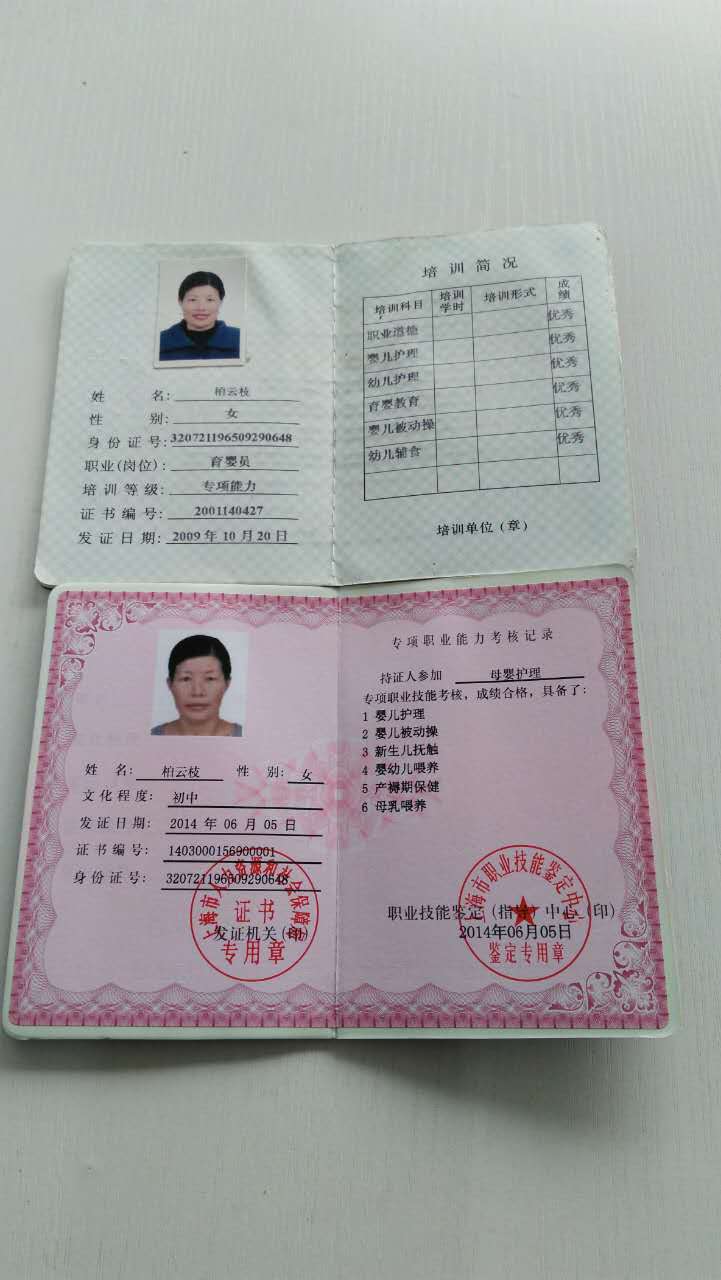 姓 名: 柏云枝
性 别: 女
身份证号: 320721196509290648
职业(岗位): 育婴员
培训等级: 专项能力
证书编号: 2001140427
发证日期: 2009年10月20日
培训简况
培训科目 培训学时 培训形式 成绩
职业道德 优秀
婴儿护理 优秀
幼儿护理 优秀
育婴教育 优秀
婴儿被动操 优秀
幼儿辅食 优秀
培训单位(章)
姓 名: 柏云枝 性 别: 女
文化程度: 初中
发证日期: 2014 年 06 月 05 日
证书编号: 1403000156900001
身份证号: 320721196509290648
发证机关(印)
上海市人力资源和社会保障局
证书
专用章
专项职业能力考核记录
持证人参加 母婴护理
专项职业技能考核,成绩合格,具备了:
1 婴儿护理
2 婴儿被动操
3 新生儿抚触
4 婴幼儿喂养
5 产褥期保健
6 母乳喂养
职业技能鉴定(指导)中心(印)
2014年06月05日
上海市职业技能鉴定中心
鉴定专用章